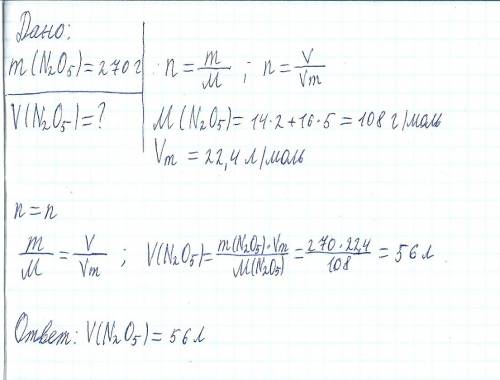 Дано:
m(N₂O₅)=270 г
n = m/M ; n = V/Vm
V(N₂O₅)=?
M(N₂O₅)= 14·2+16·5 = 108 г/моль
Vm = 22,4 л/моль
n = n
m/M = V/Vm ; V(N₂O₅)= m(N₂O₅)·Vm/M(N₂O₅) = 270·22,4/108 = 56 л
Ответ: V(N₂O₅)= 56 л